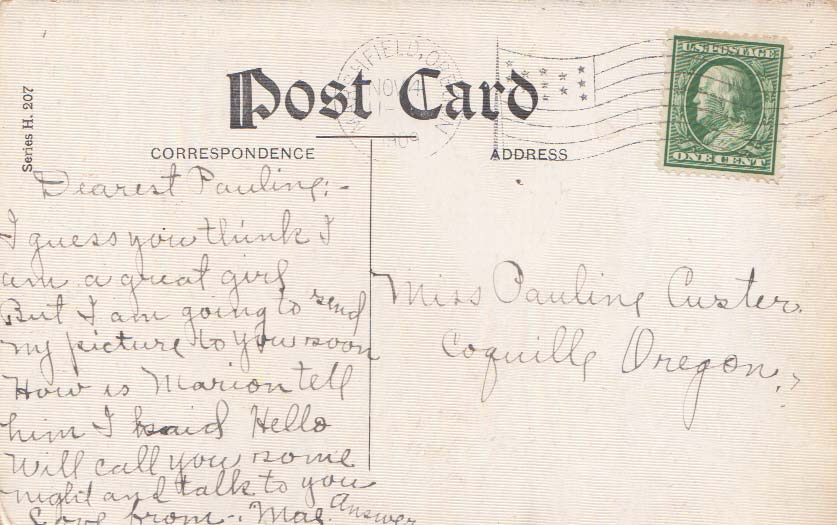 MARSHFIELD, OREGON
NOV 4
1909
U.S. POSTAGE
ONE CENT
Series H. 207
Post Card
CORRESPONDENCE
ADDRESS
Dearest Pauline:-
I guess you think I
am a great girl
But I am going to send
my picture to you soon
How is Marion tell
him I said Hello
Will call you some
night and talk to you
Love from - Mae. Answer
Miss Pauline Custer.
Coquille Oregon.